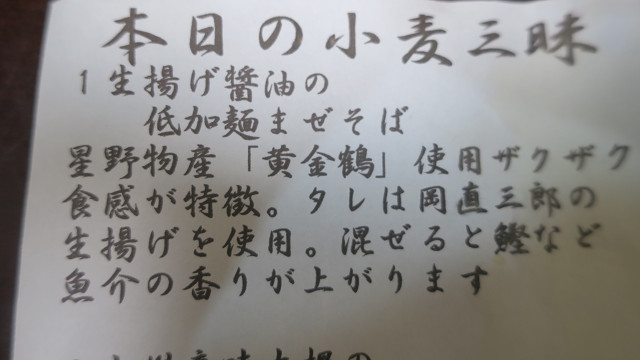 本日の小麦三昧
1生揚げ醤油の
低加麺まぜそば
星野物産「黄金鶴」使用ザクザク
食感が特徴。タレは岡直三郎の
生揚げを使用。混ぜると鰹など
魚介の香りが上がります